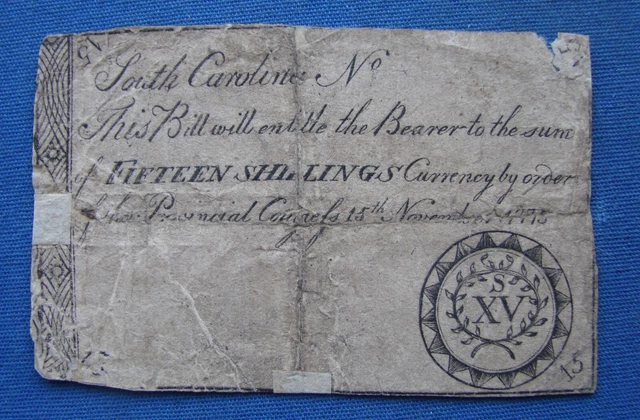 15
South Carolina No
This Bill will entitle the Bearer to the sum
of FIFTEEN SHILLINGS Currency by order
of the Provincial Congress 15th November 1775
S
XV
15
15